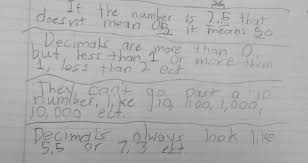 If the number is 7,5 that
doesnt mean it means 50
Decimals are more than 0
but less than 1 or more than
1, less than 2 ect
They cant go past a 10
number, like 10, 100, 1,000,
10,000 ect.
Decimals always look like
5,5 or 7,3 ect